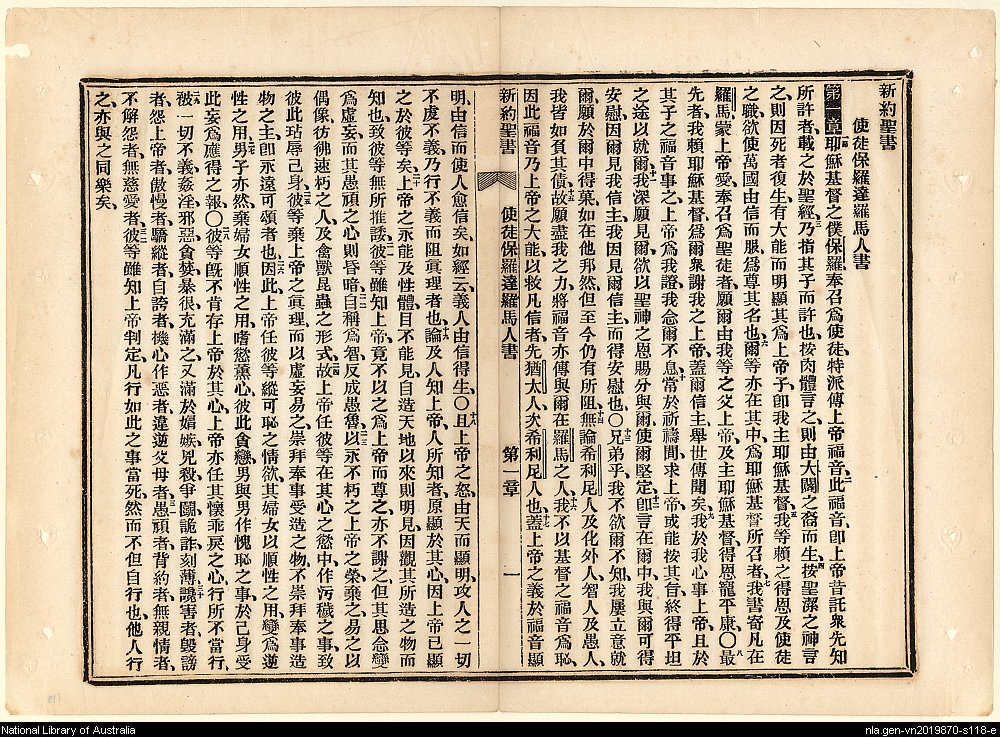 新約聖書
使徒保羅達羅馬人書
第一章耶穌基督之僕保羅奉召爲使徒特派傳上帝福音此福音卽上帝昔託衆先知
所許者載之於聖經乃指其子而許也按肉體言之則由大闢之裔而生按聖潔之神言
之則因死者復生有大能而明顯其爲上帝子卽我主耶穌基督我等賴之得恩及使徒
之職欲使萬國由信而服爲尊其名也爾等亦在其中爲耶穌基督所召者我書寄凡在
羅馬蒙上帝愛奉召爲聖徒者願爾由我等之父上帝及主耶穌基督得恩寵平康〇最
先者我賴耶穌基督爲爾衆謝我之上帝蓋爾信主舉世傳聞矣我於我心事上帝且於
其子之福音事之上帝爲我證我念爾不息常於祈禱間求上帝或能按其旨終得平坦
之途以就爾我深願見爾欲以聖神之恩賜分與爾使爾堅定卽言在爾中我與爾可得
安慰因爾見我信主我因見爾信主而得安慰也〇兄弟乎我不欲爾不知我屢立意就
爾願於爾中得菓如在他邦然但至今仍有所阻無論希利尼人及化外人智人及愚人
我皆如負其債故願盡我之力將福音亦傳與爾在羅馬之人我不以基督之福音爲恥
因此福音乃上帝之大能以救凡信者先猶太人次希利尼人也蓋上帝之義於福音顯
新約聖書 使徒保羅達羅馬人書 第一章 一
明由信而使人愈信矣如經云義人由信得生〇且上帝之怒由天而顯明攻人之一切
不虔不義乃行不義而阻眞理者也論及人知上帝人所知者原顯於其心因上帝已顯
之於彼等矣上帝之永能及性體目不能見自造天地以來則明見因觀其所造之物而
知也致彼等無所推諉彼等雖知上帝竟不以之爲上帝而尊之亦不謝之但其思念變
爲虛妄而其愚頑之心則昏暗自稱爲智反成愚魯以永不朽之上帝之榮棄之易之以
偶像彷彿速朽之人及禽獸昆蟲之形式故上帝任彼等在其心之慾中作污穢之事致
彼此玷辱己身彼等棄上帝之眞理而以虛妄易之崇拜奉事受造之物不崇拜奉事造
物之主卽永遠可頌者也因此上帝任彼等縱可恥之情欲其婦女以順性之用變爲逆
性之用男子亦然棄婦女順性之用嗜慾薰心彼此貪戀男與男作愧恥之事於己身受
此妄爲應得之報〇彼等旣不肯存上帝於其心上帝亦任其懷乖戾之心行所不當行
被一切不義姦淫邪惡貪婪暴很充滿之又滿於媢嫉兇殺爭鬭詭詐刻薄讒害者毀謗
者怨上帝者傲慢者驕縱者自誇者機心作惡者違逆父母者愚頑者背約者無親情者
不解怨者無慈愛者彼等雖知上帝判定凡行如此之事當死然而不但自行也他人行
之亦與之同樂矣
National Library of Australia
nla.gen-vn2019870-s118-e